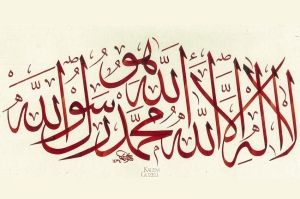 لا إله إلا الله هو الله محمد رسول الله
KALEM
GÜZELİ